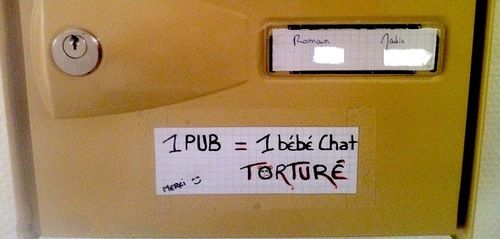 Romain
1 PUB = 1 bébé Chat
TORTURÉ
MERCI